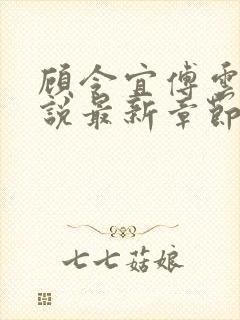 顾令宜傅雲
說最新章節
七七菇娘